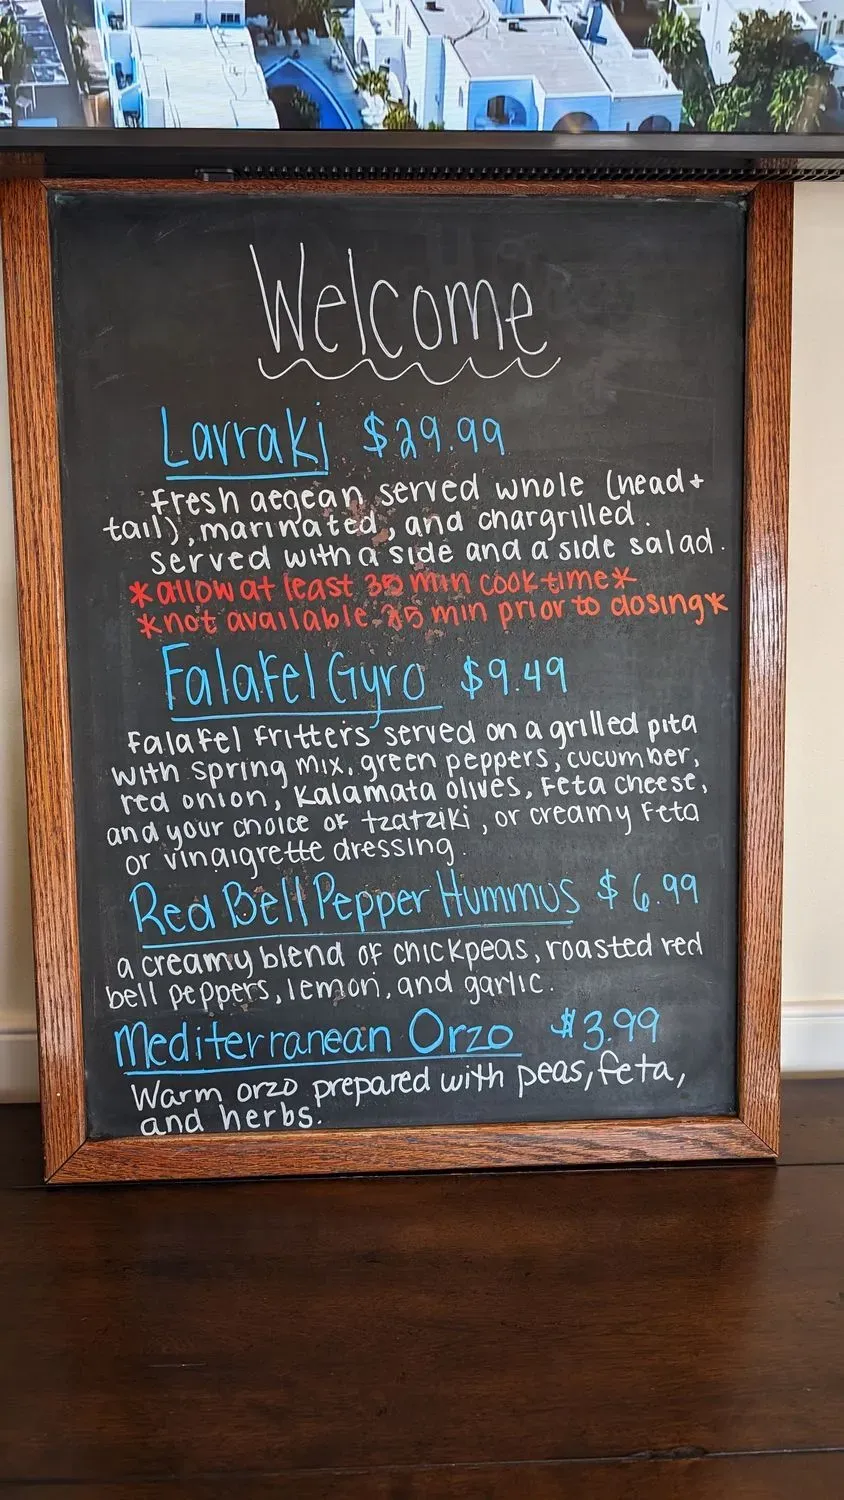 Welcome
Lavraki $29.99
Fresh aegean served whole (head +
tail), marinated, and chargrilled.
served with a side and a side salad.
*allow at least 30 min cook time*
*not available 25 min prior to closing*
Falafel Gyro $9.49
Falafel Fritters served on a grilled pita
with spring mix, green peppers, cucumber,
red onion, Kalamata olives, Feta cheese,
and your choice of tzatziki, or creamy Feta
or vinaigrette dressing.
Red Bell Pepper Hummus $6.99
a creamy blend of chickpeas, roasted red
bell peppers, lemon, and garlic.
Mediterranean Orzo $3.99
Warm orzo prepared with peas, feta,
and herbs.